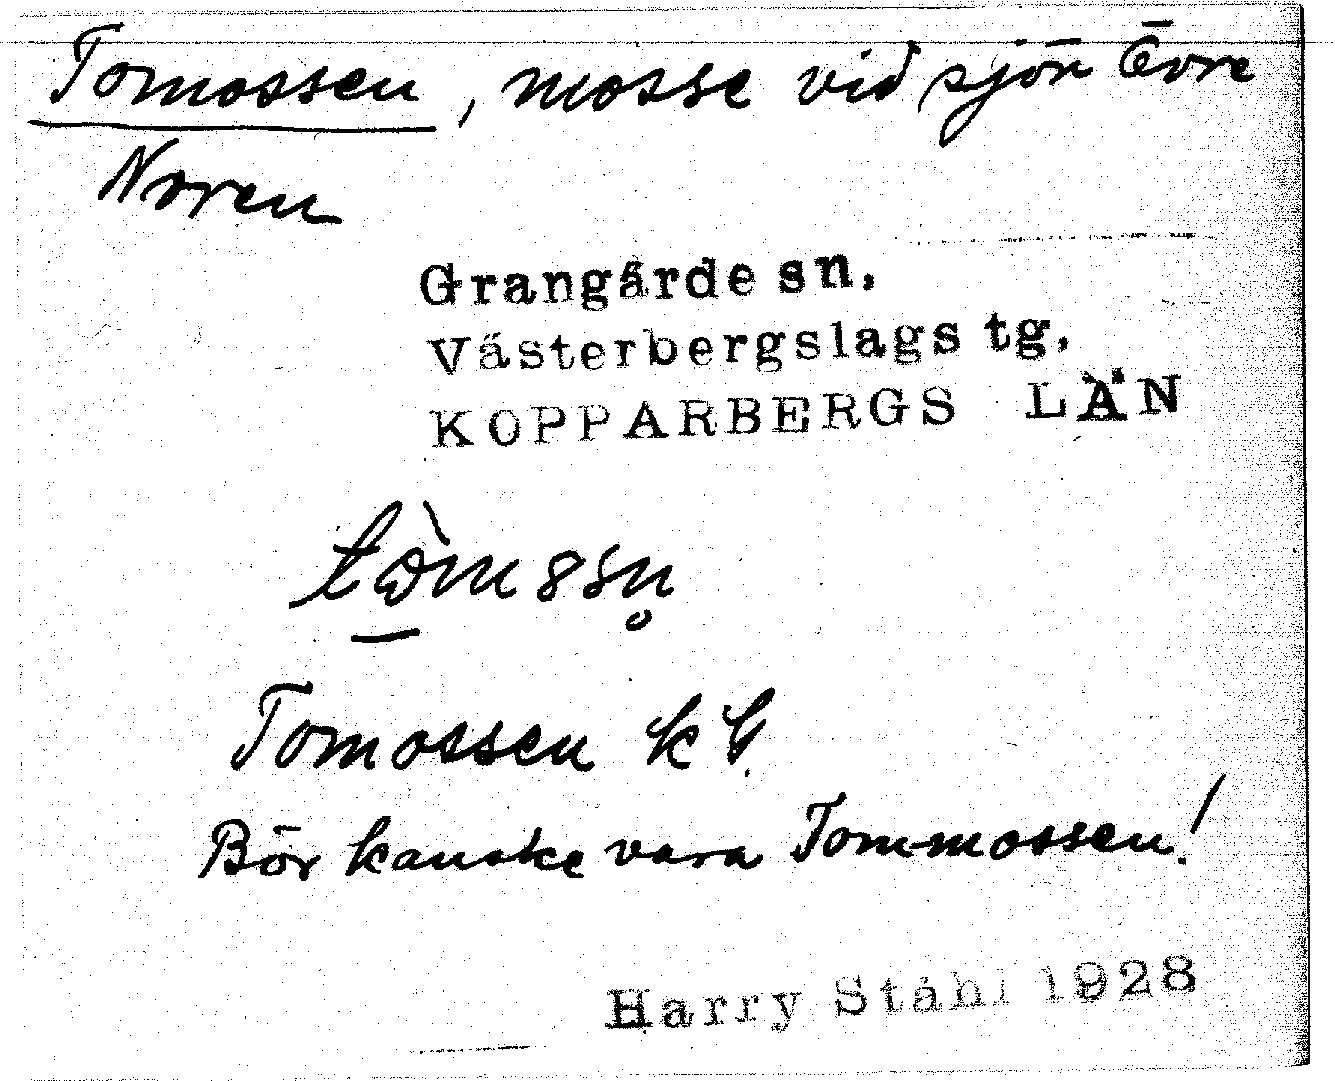 Tomossen, mosse vid sjön Övre
Noren
Grangärde sn,
Västerbergslags tg,
KOPPARBERGS LÄN
Tomossen
Bör kanske vara Tommossen!
Harry Ståhl 1928